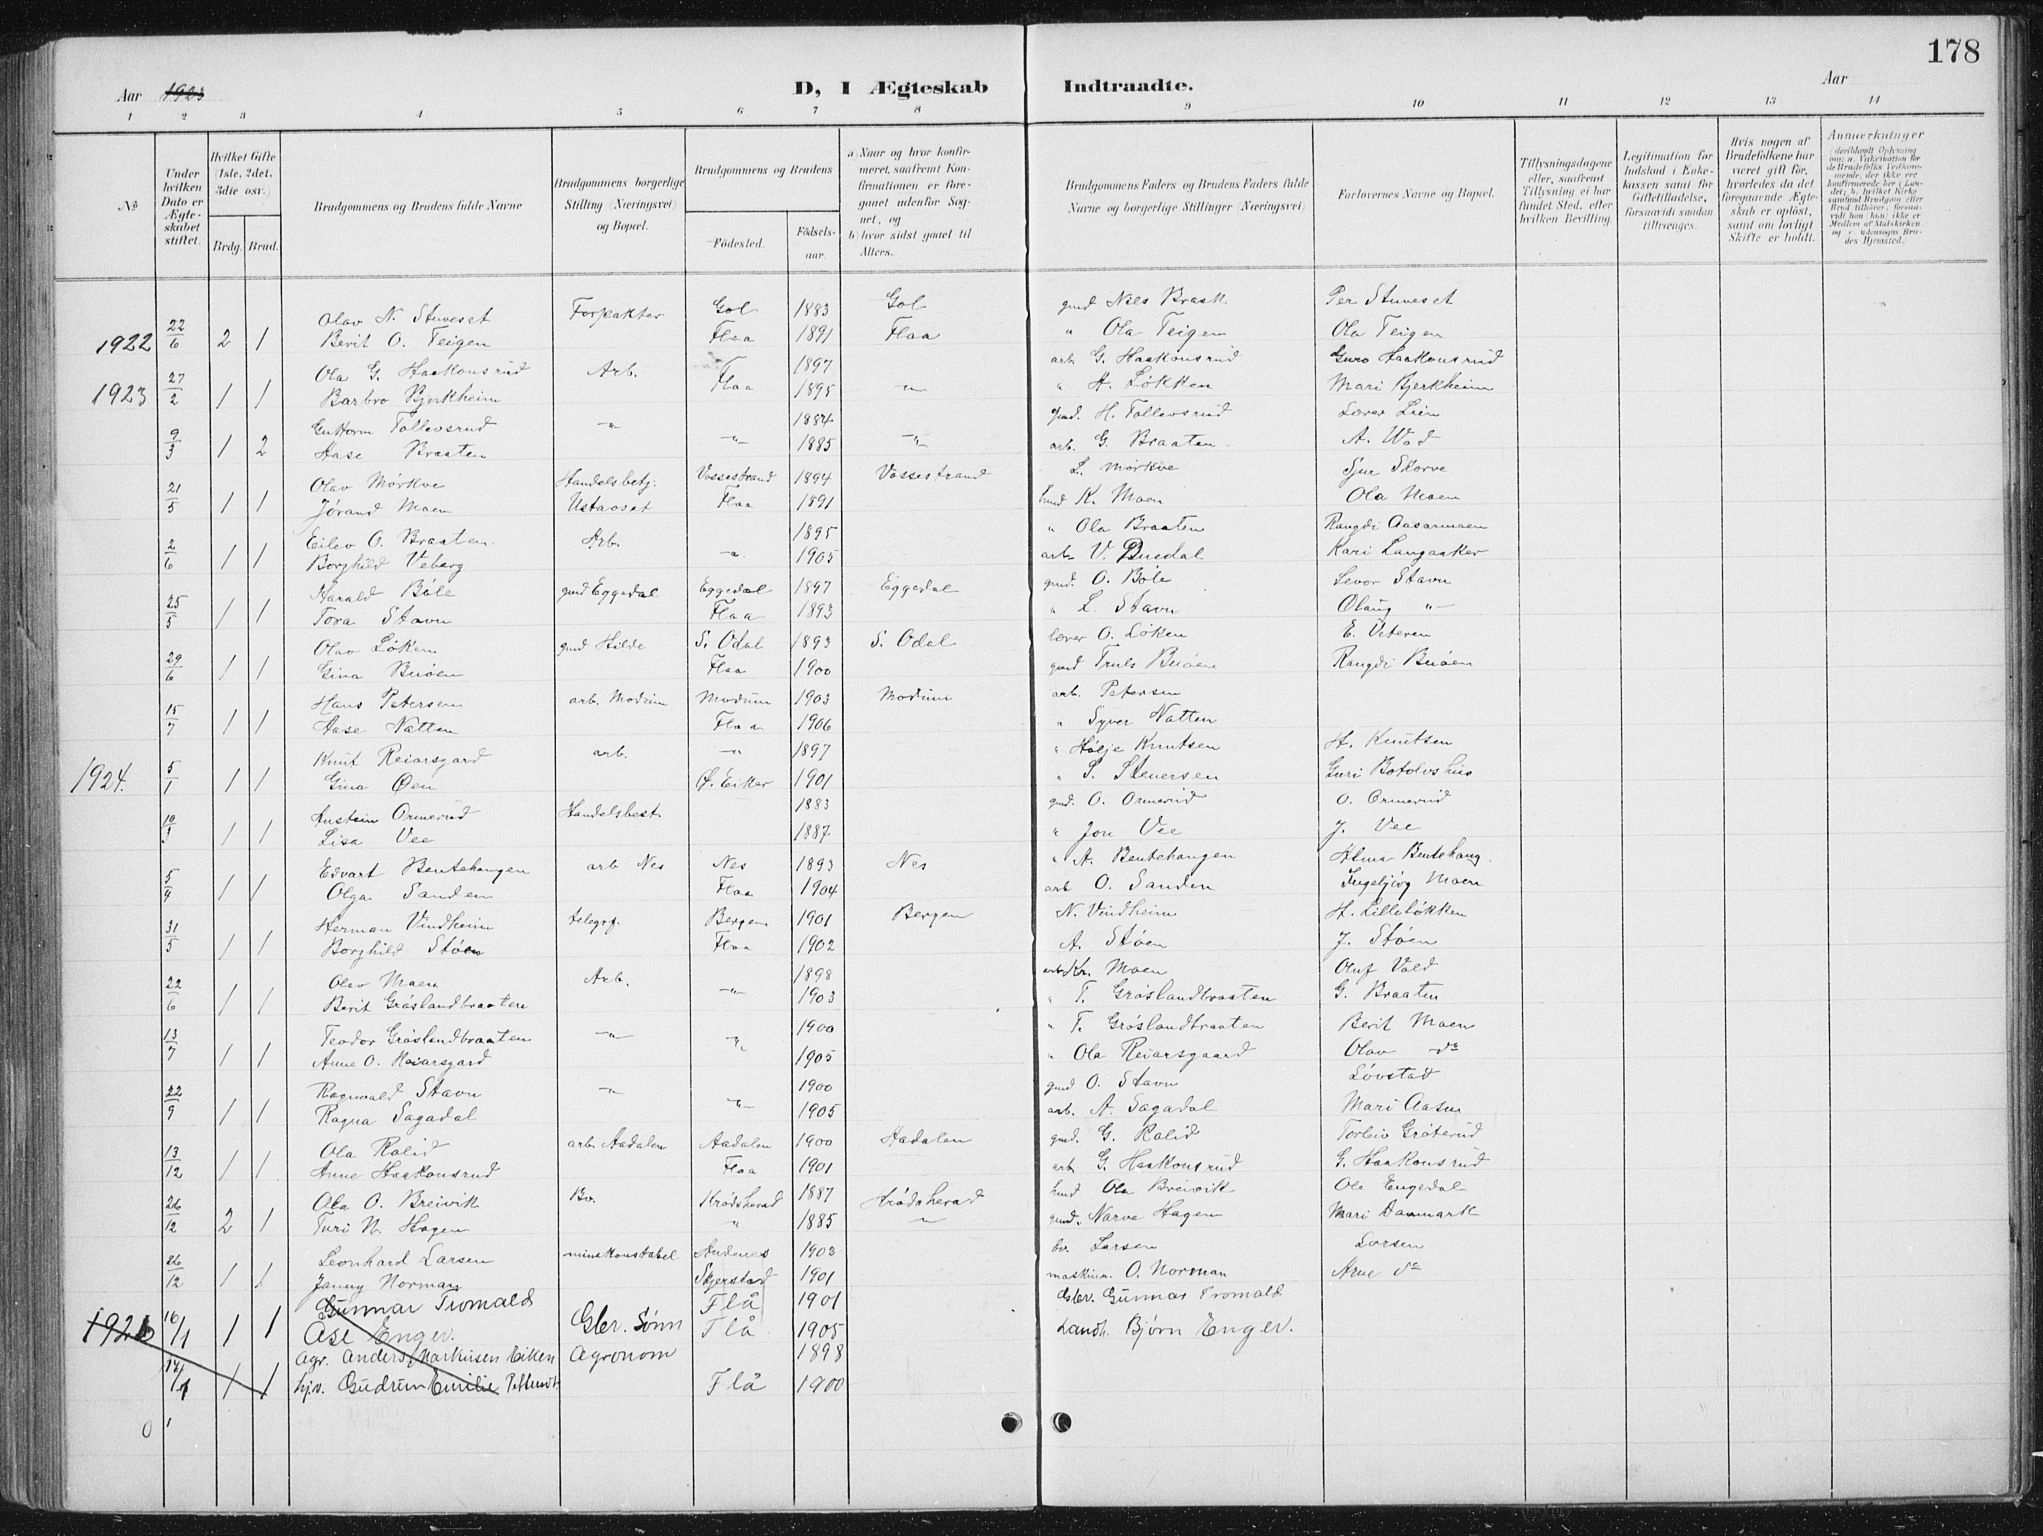 178
Aar 1923
D, I Ægteskab Indtraadte.
Aar
1 2 3 4 5 6 7 8 9 10 11 12 13 14
No
Under hvilken Dato er Ægte-skabet stiftet.
Hvilket Gifte (1ste, 2det, 3die osv.)
Brdg. Brud.
Brudgommens og Brudens fulde Navne
Brudgommens borgerlige Stilling (Næringsvei) og Bopæl.
Brudgommens og Brudens
Fødested. Fødsels-aar.
a) Naar og hvor konfirmeret, saafremt Konfirmationen er foregaaet udenfor Sognet, og
b) hvor sidst gaaet til Alters.
Brudgommens Faders og Brudens Faders fulde Navne og borgerlige Stillinger (Næringsvei)
Forlovernes Navne og Bopæl.
Tillysningsdagene eller, saafremt Tillysning ei har fundet Sted, efter hvilken Bevilling.
Legitimation for Indskud i Enkekassen samt for Giftetilladelse, forsaavidt saadan tiltrænges.
Hvis nogen af Brudefolkene har været gift før, hvorledes da det foregaaende Ægteskab er opløst, samt om lovligt Skifte er holdt.
Anmerkninger
Olav N. Stuveset Forpakter Gol 1883 Gol gmd Nils Brask Per Stuveset
1922 22/6 2 1 Berit O. Teigen Flaa 1891 Flaa " Ola Teigen Ola Teigen
Ola G. Haakonsrud Arb. 1897 arb. G. Haakonsrud Guro Haakonsrud
1923 27/2 1 1 Barbro Bjerkheim Flaa 1895 " " H. Løkken Mari Bjerkheim
Guttorm Tollevsrud " 1884 gmd. H. Tollevsrud Lærer Lien
9/3 1 2 Aase Braaten " 1885 " arb. G. Braaten A. Wad
Olav Mørkve Handelsbetj. Vossestrand 1894 Vossestrand L. Mørkve Sjur Skorve
21/5 1 1 Jørand Moen Ustaoset Flaa 1891 hmd K. Moen Ola Moen
Eilev O. Braaten Arb. 1895 " Ola Braaten Rangdi Aasarmoen
2/6 1 1 Borghild Veberg " 1905 arb. V. Busdal Kari Langaaker
Harald Bøle gmd Eggedal Eggedal 1897 Eggedal gmd. O. Bøle Levor Stavn
25/5 1 1 Tora Stavn Flaa 1893 " L. Stavn Olaug "
Olav Løken gmd Hilde S. Odal 1893 S. Odal lærer O. Løken E. Veteren
29/6 1 1 Gina Buøen Flaa 1900 gmd Truls Buøen Rangdi Buøen
Hans Petersen arb. Modum Modum 1903 Modum arb. Petersen
15/7 1 1 Aase Natten Flaa 1906 " Syver Natten
Knut Reiarsgard arb. " 1897 " Hølje Knutsen H. Knutsen
1924. 5/1 1 1 Gina Øen Ø. Eiker 1901 " S. Stenersen Guri Botolvshus
Austein Ormerud Handelsbest. 1883 gmd. O. Ormerud O. Ormerud
1 1 Lisa Vee 1887 " Jon Vee J. Vee
Edvart Bentehaugen arb Nes Nes 1893 Nes " A. Bentehaugen Alma Bentehaug.
5/4 1 1 Olga Sanden Flaa 1904 arb O. Sanden Ingebjørg Moen
Herman Vindheim telegrf. Bergen 1901 Bergen N. Vindheim H. Lilleløkken
31/5 1 1 Borghild Støen Flaa 1902 A. Støen J. Støen
Olav Moen Arb. 1898 arb Kn. Moen Oluf Vold
22/6 1 1 Berit Grøslandbraaten " 1903 " T. Grøslandbraaten G. Braaten
Teodor Grøslandbraaten " 1900 " T. Grøslandbraaten Berit Moen
13/7 1 1 Anne O. Reiarsgard " 1905 " Ola Reiarsgaard Olav do
Ragnvald Stavn " 1900 gmd O. Stavn Løvstad
22/9 1 1 Ragna Sagadal " 1905 arb. A. Sagadal Mari Aasen
Ola Ralid arb. Aadalen Aadalen 1900 Aadalen gmd. G. Ralid Torleiv Grøterud
13/12 1 1 Anne Haakonsrud Flaa 1901 arb G. Haakonsrud G. Haakonsrud
Ola O. Breivik Bv. Krødsherad 1887 Krødsherad hmd Ola Breivik Ole Engedal
26/12 2 1 Turi N. Hagen " 1885 " gmd. Narve Hagen Mari Danmark
Leonhard Larsen minekonstabel Andenes 1903 bv. Larsen Larsen
26/12 1 1 Jenny Norman Skjerstad 1901 maskinm. O. Norman Arne do
Gunnar Tromald Flå 1901 Gbr. Gunnar Tromald
192 16/1 1 1 Åse Enger. Gbr. Sønn Flå 1905 Landh. Bjørn Enger.
Agr. Anders Markusen Eiken Agronom 1898
14/1 1 1 hjv. Gudrun Emilie Flå 1900
0 1